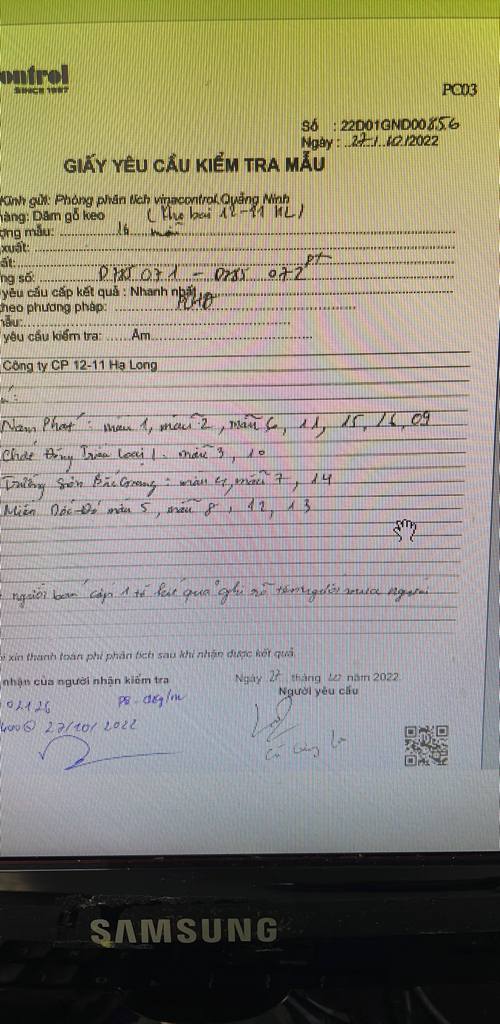 ontrol
SINCE 1997
PC03
Số : 22D01GND00856
Ngày : 27/10/2022
GIẤY YÊU CẦU KIỂM TRA MẪU
Kính gửi: Phòng phân tích vinacontrol Quảng Ninh
hàng: Dăm gỗ keo (Kho bãi 12-11 HL)
ợng mẫu: 16 mẫu
xuất:
ất:
ng số: 0785 071 - 0785 072
yêu cầu cấp kết quả : Nhanh nhất
theo phương pháp:
mẫu:
yêu cầu kiểm tra: Ẩm
Công ty CP 12-11 Hạ Long
Nam Phát : mẫu 1, mẫu 2, mẫu 6, 11, 15, 16, 09
loại 1: mẫu 3, 10
Trường Sơn Bắc Giang : mẫu 4, mẫu 7, 14
Miền mẫu 5, mẫu 8, 12, 13
người bán cấp 1 tờ kết quả ghi rõ tên người mua người
i xin thanh toán phí phân tích sau khi nhận được kết quả.
nhận của người nhận kiểm tra
Ngày 27 tháng 10 năm 2022
Người yêu cầu
02126
27/10/2022
SAMSUNG